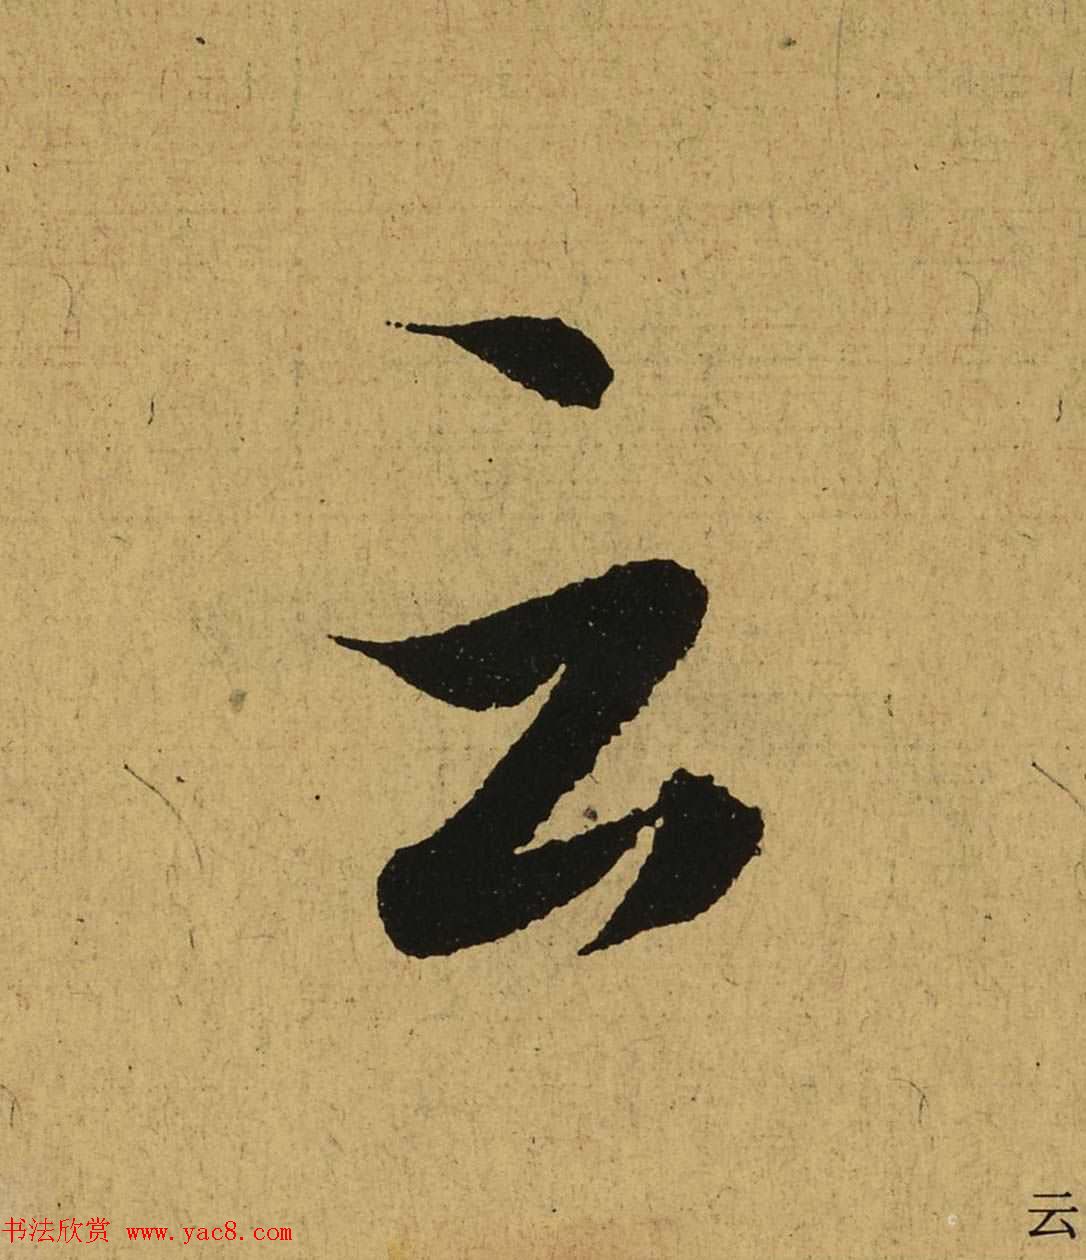 云
书法欣赏 www.yac8.com
云